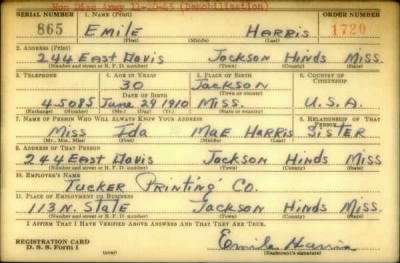 Hon Disc Army 11-20-45 (Demobilization)
SERIAL NUMBER 1. NAME (Print) ORDER NUMBER
865 EMILE HARRIS 1720
(First) (Middle) (Last)
2. ADDRESS (Print)
244 East Davis Jackson Hinds Miss.
(Number and street or R. F. D. number) (Town) (County) (State)
3. TELEPHONE 4. AGE IN YEARS 5. PLACE OF BIRTH 6. COUNTRY OF CITIZENSHIP
30 Jackson
DATE OF BIRTH (Town or county)
4-5085 June 29 1910 Miss. U.S.A.
(Exchange) (Number) (Mo.) (Day) (Yr.) (State or country)
7. NAME OF PERSON WHO WILL ALWAYS KNOW YOUR ADDRESS 8. RELATIONSHIP OF THAT PERSON
Miss Ida Mae Harris Sister
(Mr., Mrs., Miss) (First) (Middle) (Last)
9. ADDRESS OF THAT PERSON
244 East Davis Jackson Hinds Miss
(Number and street or R. F. D. number) (Town) (County) (State)
10. EMPLOYER'S NAME
Tucker Printing Co.
11. PLACE OF EMPLOYMENT OR BUSINESS
113 N. State Jackson Hinds Miss.
(Number and street or R. F. D. number) (Town) (County) (State)
I AFFIRM THAT I HAVE VERIFIED ABOVE ANSWERS AND THAT THEY ARE TRUE.
REGISTRATION CARD
D. S. S. Form 1
Emile Harris
(Registrant's signature)